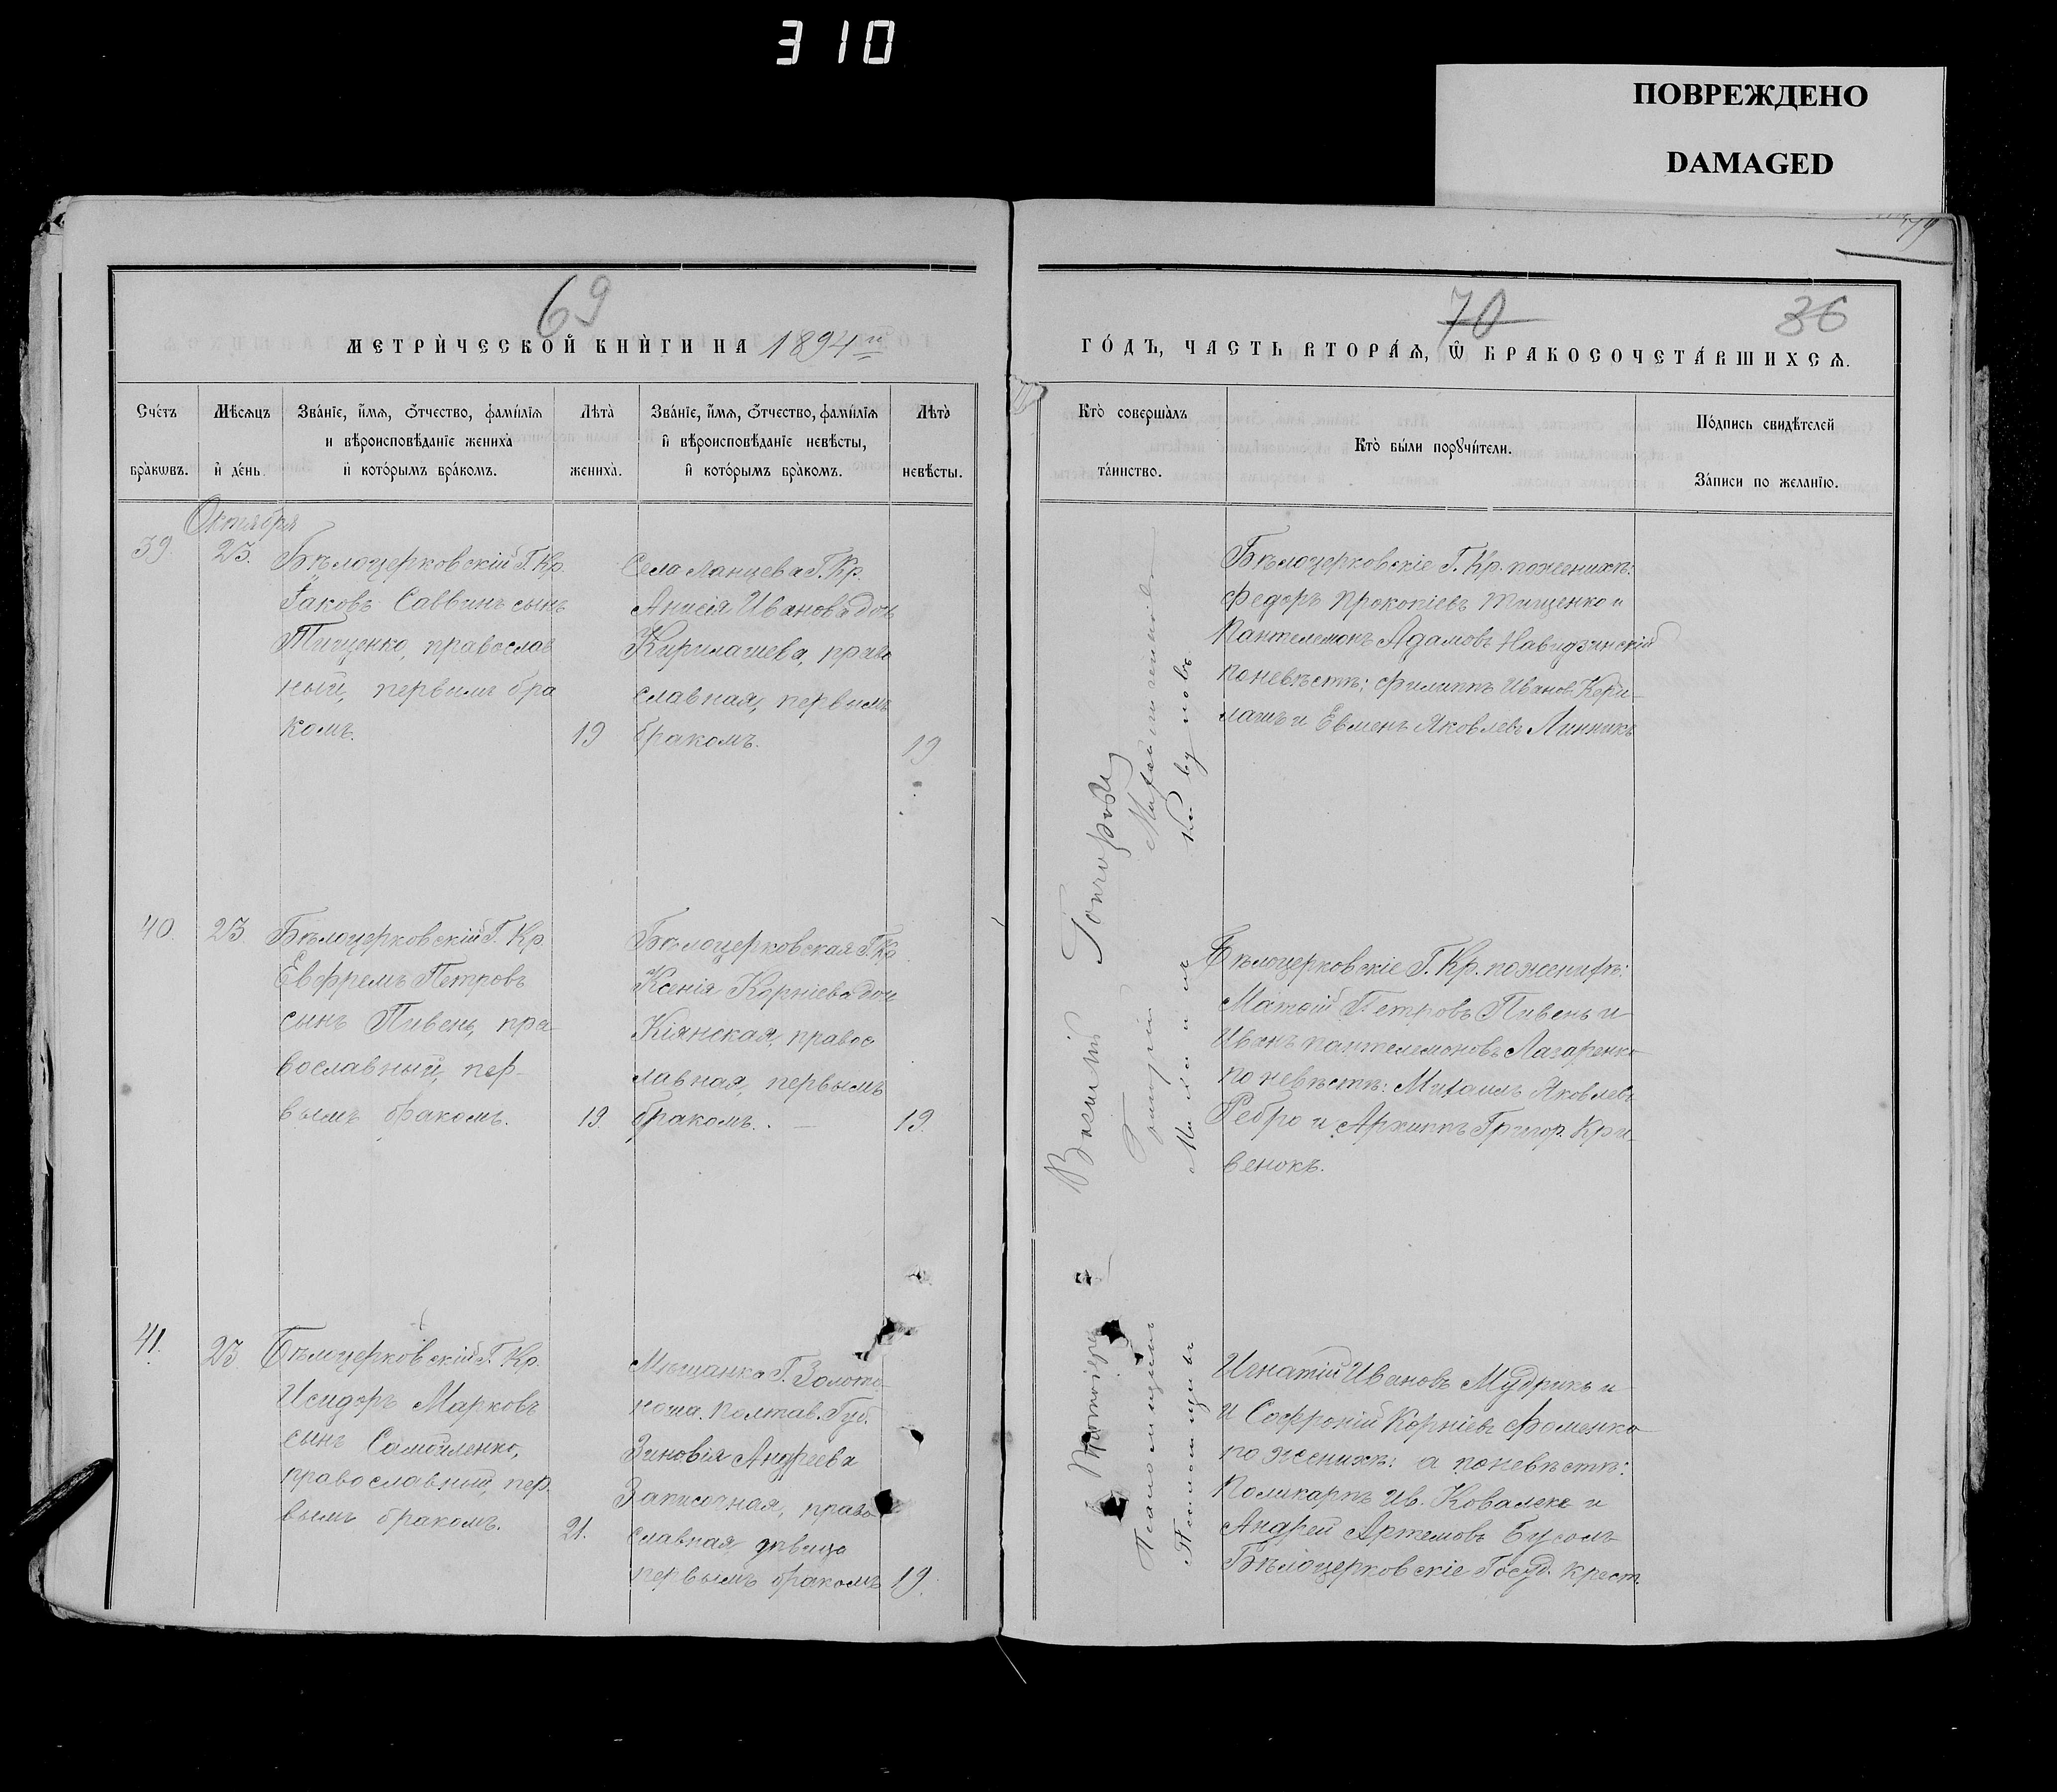 310
ПОВРЕЖДЕНО
DAMAGED
79
69
МЕТРИ́ЧЕСКОЙ КНИ́ГИ НА 1894й
70
36
ГО́ДЪ, ЧАСТЬ ВТОРА́Ѧ, Ѿ БРАКОСОЧЕТА́ВШИХСѦ.
Сче́тъ бра́кѡвъ.
Мѣ́сѧцъ и҆ де́нь.
Зва́нїе, и҆́мѧ, ѻ҆́тчество, фами́лїѧ
и вѣроисповѣ́данїе жениха̀
и҆ кото́рымъ бра́комъ.
Лѣ́та̀ жениха̀.
Зва́нїе, и҆́мѧ, ѻ҆́тчество, фами́лїѧ
и҆ вѣроисповѣ́данїе невѣ́сты,
и҆ кото́рымъ бра́комъ.
Лѣ́та̀ невѣ́сты.
Кто̀ соверша́лъ
та́инство.
Кто̀ бы́ли порꙋчи́тели.
По́дпись свидѣ́телей
За́писи по жела́нїю.
Октября
39. 23.
Бѣлоцерковскій Г. Кр.
Іаковъ Саввинъ сынъ
Тищенко, православ
ный, первымъ бра
комъ.
19
Села Ланцева Г. Кр.
Анисія Иванова доч
Кирилашева, право
славная, первымъ
бракомъ.
19
Бѣлоцерковскіе Г. Кр. по женихѣ:
Федоръ Прокопіевъ Тищенко и
Пантелемонъ Адамовъ Навидзинскій
по невѣстѣ; Филиппъ Иванов Кери-
лашъ и Евменъ Яковлевъ Линникъ
40. 23
Бѣлоцерковскій Г. Кр.
Евфремъ Петровъ
сынъ Пивень, пра-
вославный, пер-
вымъ бракомъ.
19.
Бѣлоцерковская Г. Кр.
Ксенія Корніева доч
Кіянская, правос
лавная, первымъ
бракомъ.
19
Бѣлоцерковскіе Г. Кр. по женихѣ:
Матөій Петровъ Пивень и
Иванъ Пантелемоновъ Лазаренко
по невѣстѣ: Михаилъ Яковлевъ
Ребро и Архиппъ Григор. Кри-
венокъ.
41. 23.
Бѣлоцерковскій Г. Кр.
Исидоръ Марковъ
сынъ Самойленко,
православный, пер
вымъ бракомъ.
21.
Мѣщанка Г. Золото-
ноша. Полтав. Губ.
Зиновія Андреева
Записочная, право
славная, дѣвица
первымъ бракомъ
19.
Игнатій Ивановъ Мудрикъ и
и Софроній Корніевъ Фоменко
по женихѣ: а по невѣстѣ:
Поликарпъ Ив. Ковалеко и
Андрей Артемовъ Бусолъ
Бѣлоцерковскіе Госуд. Крест.
Василій
Псаломщикъ
Псаломщикъ